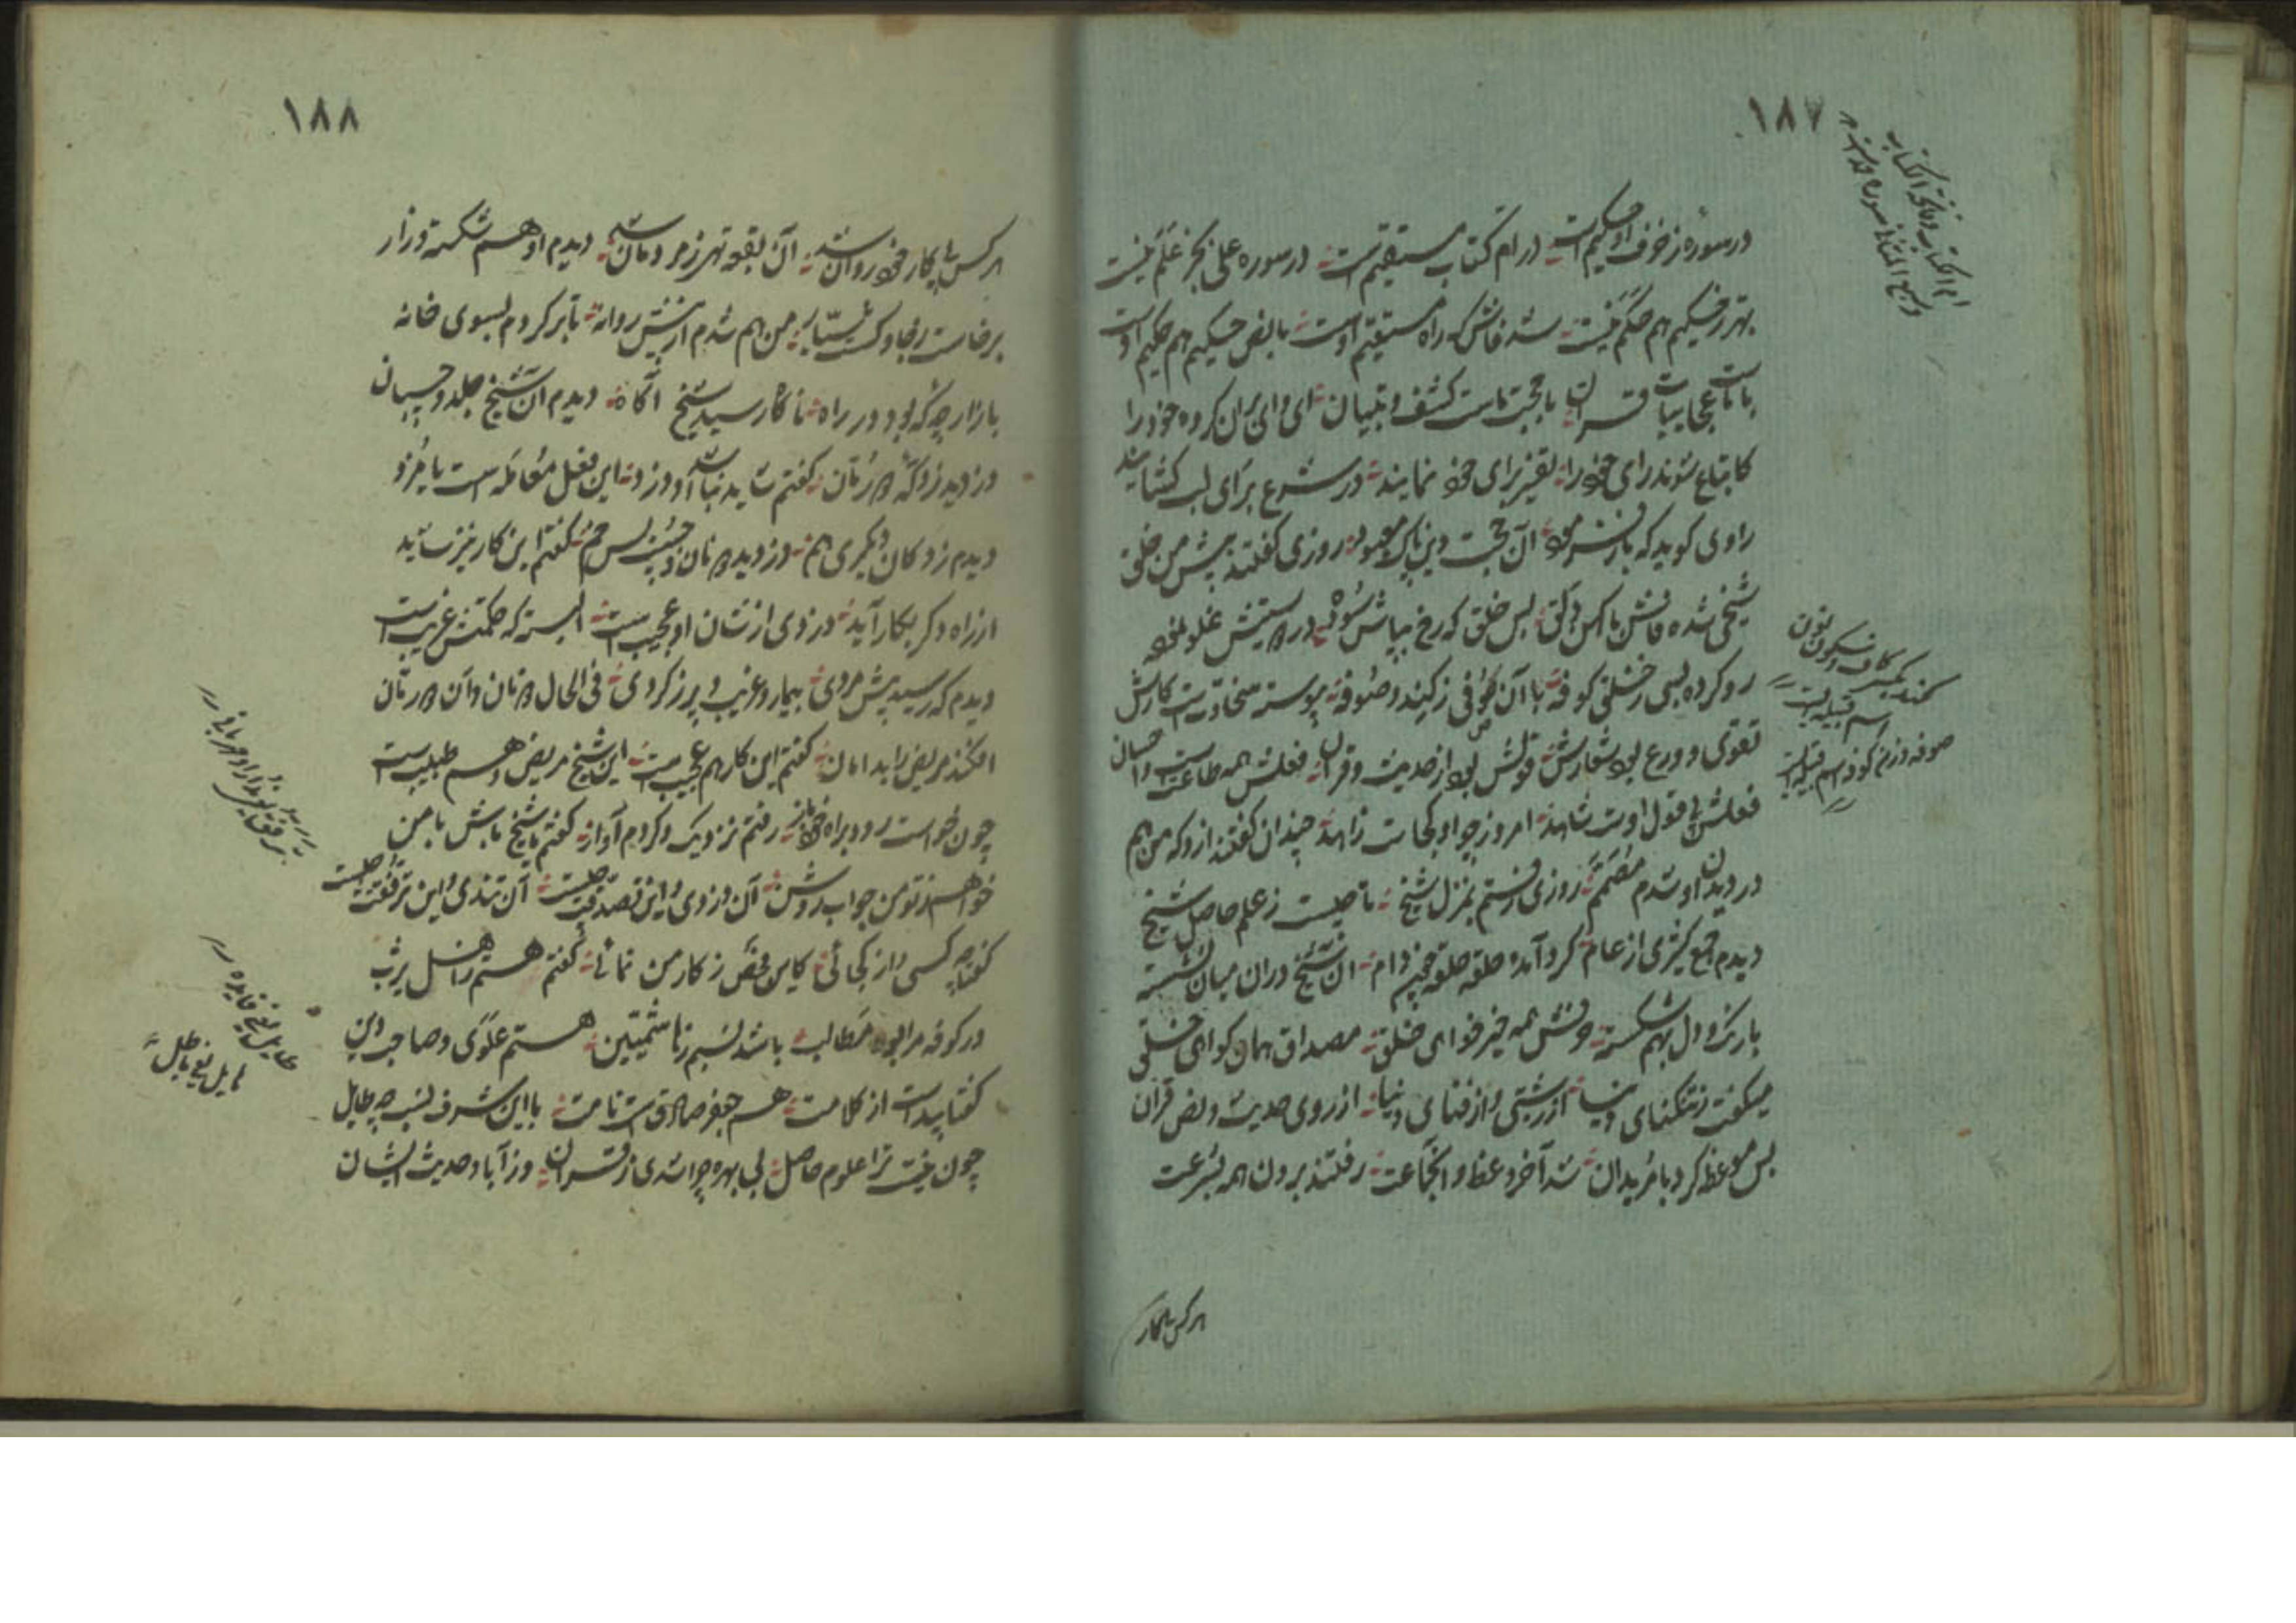 ۱۸۷
در سوره زخرف او حکیم است در ام کتاب مستقیم است در سوره علی بجز علم نیست
بهتر ز حکیم هم حکم نیست شد فاش که راه مستقیم اوست بالنص حکیم هم حکیم اوست
عجایبات قرآن با حجت ماست کشف و تبیان ای وای بران کروه خود را
کاتباع شوند رای خود را تفسیر برای خود نمایند در شرع برای لب کشایند
راوی کوید که بار فرمود آن حجت دین پاک معبود روزی کفتند پیش من خلق
شیخی شده فاش بس خلق که رخ بپاش سوده در راستیش غلو نموده
رو کرده بسی ز خلق کوفه با آن کوفی ز کنده و صوفه پیوسته سخاوتست کارش
تقوی و ورع بود شعارش قولش بود از حدیث و قرآن فعلش همه طاعت است و احسان
فعلش با قول اوست شاهد امروز چو او کجاست زاهد چندان کفتند ازو که من هم
در دیدن او شدم مصمم روزی رفتم بمنزل شیخ تا چیست ز علم حاصل شیخ
دیدم جمع کثیری از عام کرد آمده حلقه حلقه چون دام آن شیخ دران میان نشسته
با رنک و دل بهم شکسته همه خیر خواهی خلق مصداق همان کواهی خلق
میکفت ز تنکنای دنیا از زشتی و از فنای دنیا از روی حدیث و نص قرآن
بس موعظه کرد با مریدان شد آخر وعظ و آن جماعت رفتند برون همه بسرعت
ام الکتاب و فاتحة الکتاب
و سبع المثانی سوره حمد است
کنده بکسر کاف و سکون نون
اسم قبیله ایست
صوفه وزن کوفه اسم قبیله ایست
هر کس پی کار
۱۸۸
هر کس پی کار خود روان شد آن بقعه تهی ز مردمان شد دیدم او هم شکسته و زار
برخاست ز جا و کشت سیار من هم شدم از پیش روانه تا بر کردم بسوی خانه
بازار چه که بود در راه ناکاه رسید شیخ آکاه دیدم آن شیخ جلد و چسبان
دزدید ز دکه دو نان کفتم شاید نباشد او دزد این فعل معامله است با مزد
دیدم ز دکان دیکری هم دزدید دو نان کفتم این کار نیز شاید
از راه دکر بکار آید دزدی از شان او عجیب است البته که حکمتش غریب است
دیدم که رسید پیش مردی بیمار و غریب و پر ز کردی فی الحال دو نان و آن دو رمان
افکند مریض را بدامان کفتم این کار هم عجیب است این شیخ مریض و هم طبیب است
چون خواست رود براه خود باز رفتم نزدیک و کردم آواز کفتم یا شیخ باش با من
خواهم ز تو من جواب روشن آن دزدی و این تصدقت چیست آن تندی و این ترفقت چیست
کفتا چه کسی و از کجائی کاین فحص ز کار من نمائی کفتم هستم ز اهل یثرب
در کوفه مرا بود مطالب باشد نسبم ز هاشمیین هستم علوی و صاحب دین
کفتا پیداست از کلامت هم جعفر صادق است نامت با این شرف نسب چه طایل
چون نیست ترا علوم حاصل بی بهره چرا شدی ز قرآن وز آبا و حدیث ایشان
طایل یعنی فایده